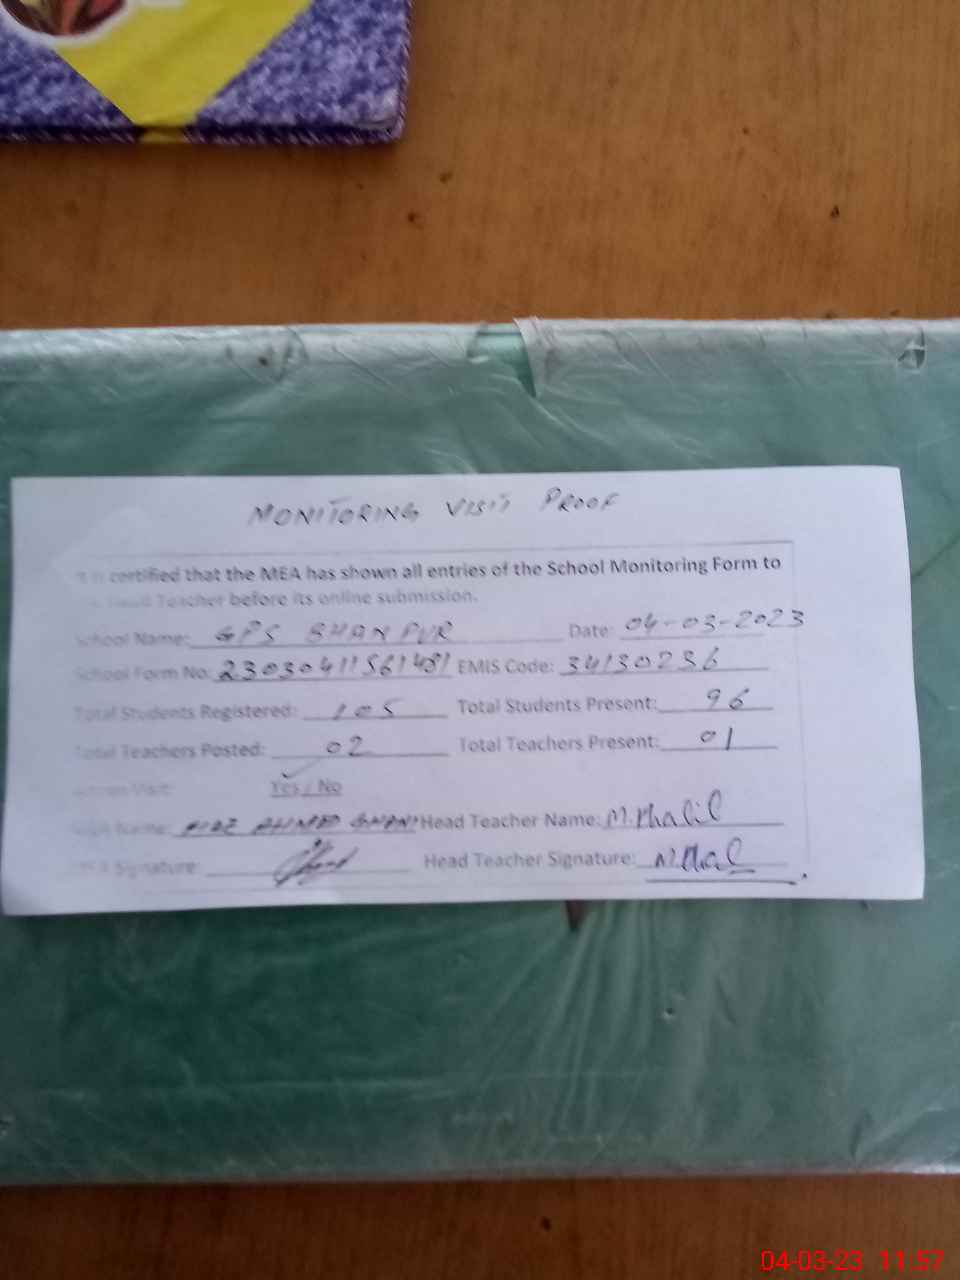 MONITORING VISIT PROOF
It is certified that the MEA has shown all entries of the School Monitoring Form to
the Head Teacher before its online submission.
School Name: GPS BHAN PUR Date: 04-03-2023
School Form No: 23030411561481 EMIS Code: 34130236
Total Students Registered: 105 Total Students Present: 96
Total Teachers Posted: 02 Total Teachers Present: 01
Visit: Yes / No
Name: AHMED Head Teacher Name: M. Khalil
Signature: Head Teacher Signature:
04-03-23 11:57